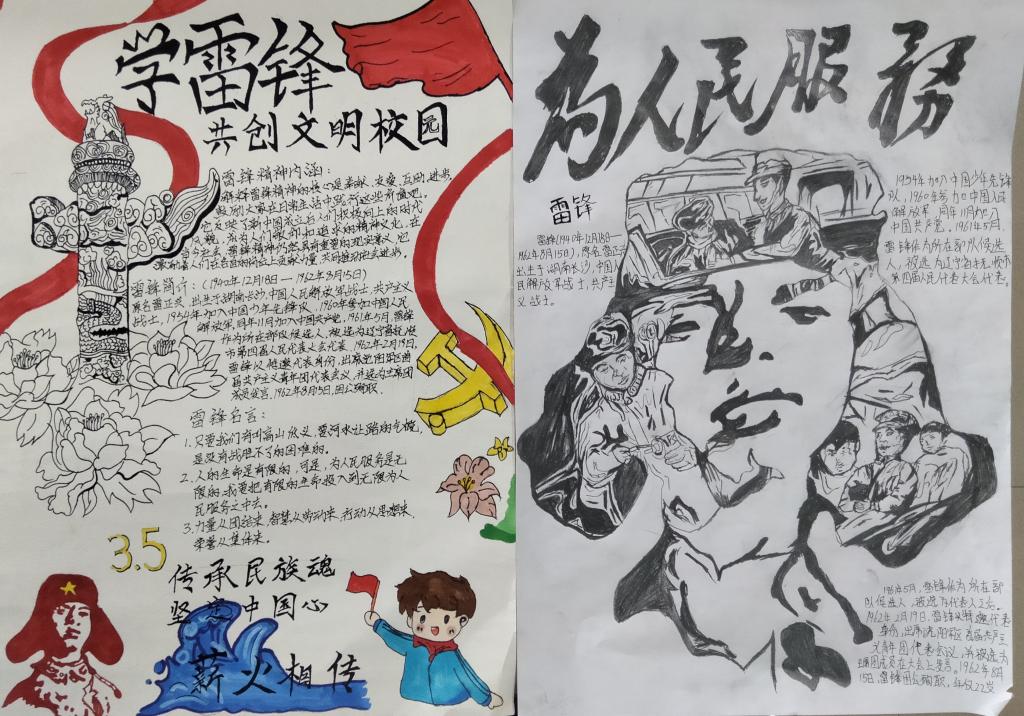 学雷锋
共创文明校园
雷锋精神内涵:
雷锋精神的核心是奉献、友爱、互助、进步,
雷锋简介:(1940年12月18日—1962年8月15日)
原名雷正兴,出生于湖南长沙,中国人民解放军战士,共产主义
战士,1954年加入中国少年先锋队,1960年参加中国人民
解放军,同年11月加入中国共产党。1961年5月,雷锋
作为所在部队候选人,被选为辽宁省抚顺
市第四届人民代表大会代表。1962年2月19日,
雷锋以特邀代表身份,出席沈阳军区首
届共产主义青年团代表会议,并被选为主席团
成员发言。1962年8月15日,因公殉职
雷锋名言:
是没有战胜不了的困难的。
2.人的生命是有限的,可是,为人民服务是无
限的,我要把有限的生命投入到无限为人
民服务之中去。
3.力量从团结来,智慧从劳动来,行动从思想来,
荣誉从集体来。
3.5
传承民族魂
中国心
薪火相传
为人民服务
雷锋
雷锋(1940年12月18日—
1962年8月15日),原名雷正兴
出生于湖南长沙,中国人
民解放军战士,共产主
义战士。
1954年加入中国少年先锋
队,1960年参加中国人民
解放军,同年11月加入
中国共产党。1961年5月,
雷锋作为所在部队候选
人,被选为辽宁省抚顺市
第四届人民代表大会代表。
1961年5月,雷锋作为所在部
1962年2月19日,雷锋以特邀代表
身份,出席沈阳军区首届共产主
义青年团代表会议,并被选为
主席团成员在大会上发言。1962年8月
15日,雷锋因公殉职,年仅22岁